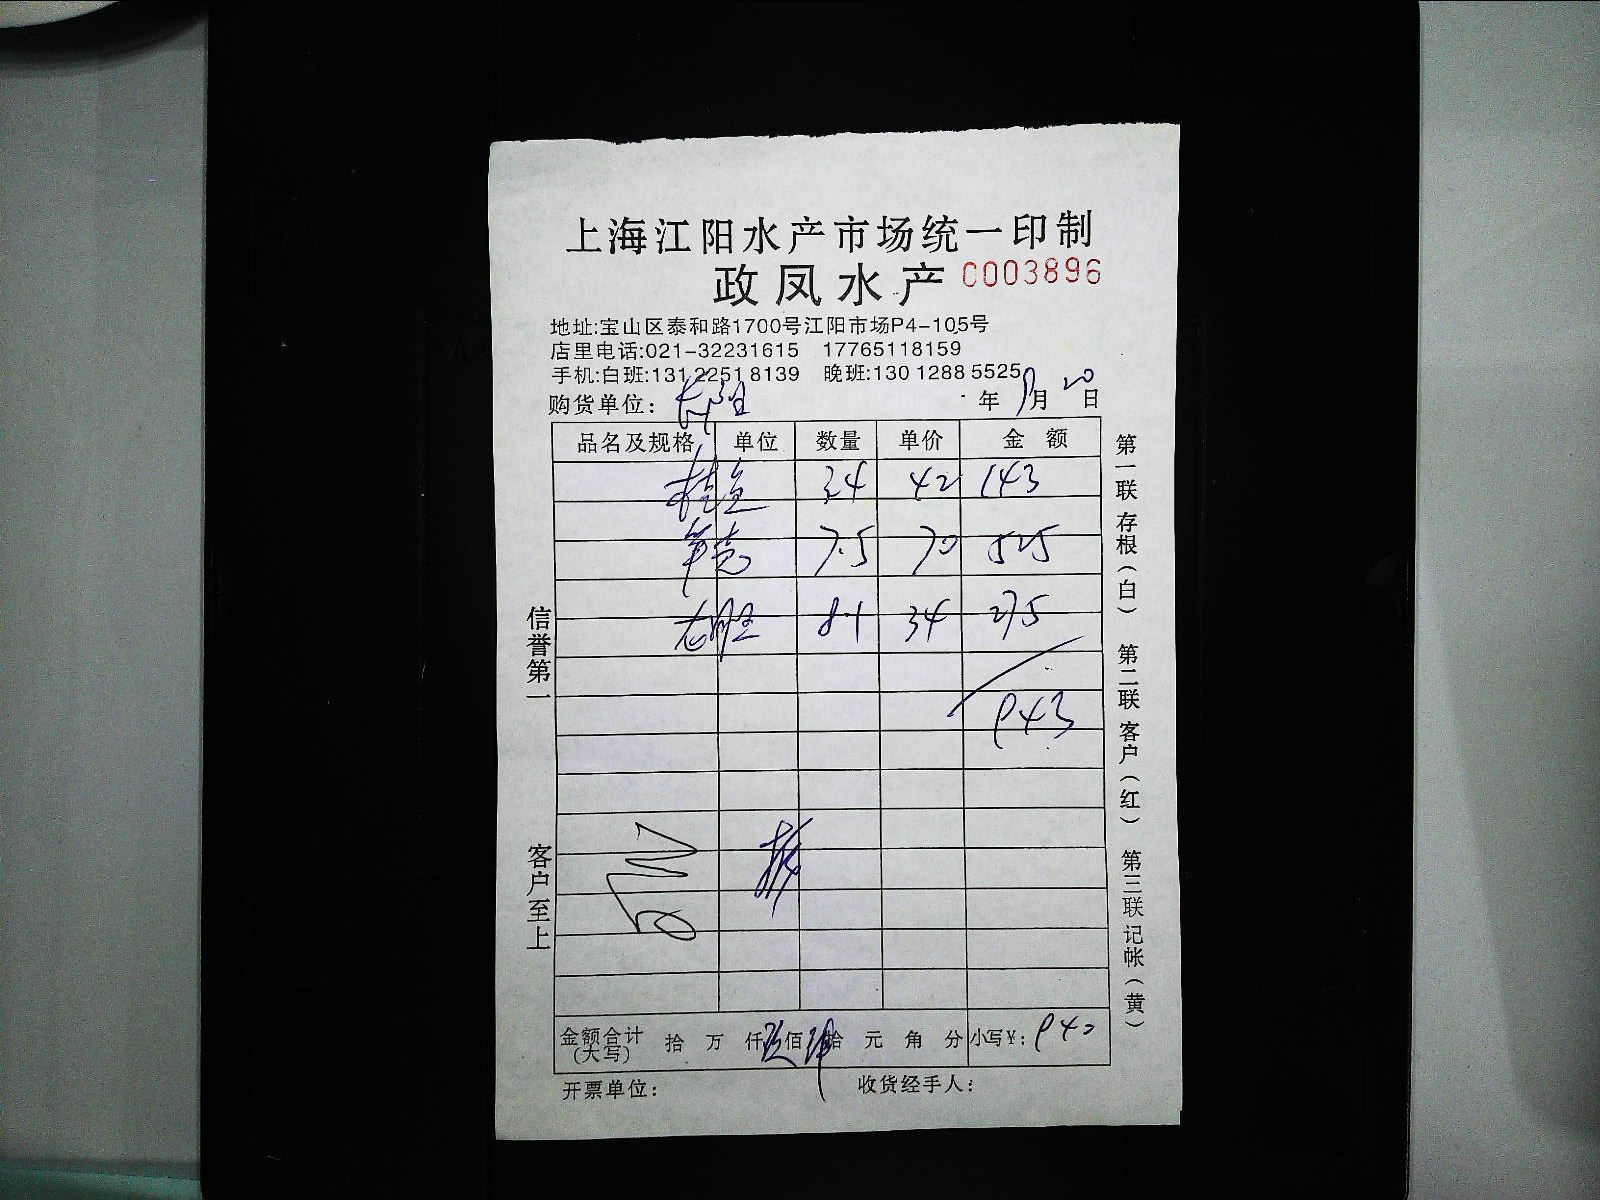 上海江阳水产市场统一印制
政凤水产 0003896
地址:宝山区泰和路1700号江阳市场P4-105号
店里电话:021-32231615 17765118159
手机:白班:131 2251 8139 晚班:130 1288 5525
购货单位: 年 9月 20日
品名及规格 单位 数量 单价 金额
桂鱼 34 42 143
7.5 70 525
8.1 34 275
943
金额合计(大写) 拾 万 仟 玖佰 肆拾 元 角 分 小写¥: 940
开票单位: 收货经手人:
信誉第一 客户至上
第一联存根(白) 第二联客户(红) 第三联记帐(黄)